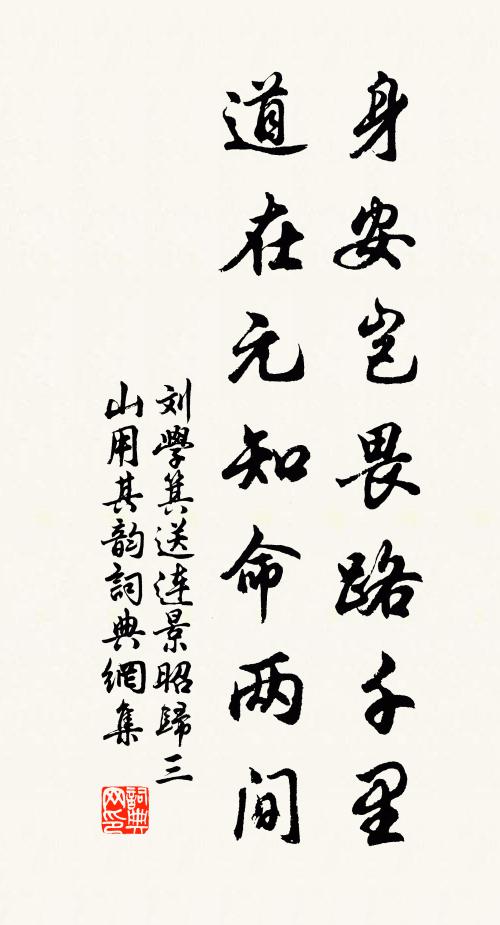 身安岂畏路千里
道在元知命两間
刘學箕送连景昭歸三
山用其韵詞典網集
詞典
网印